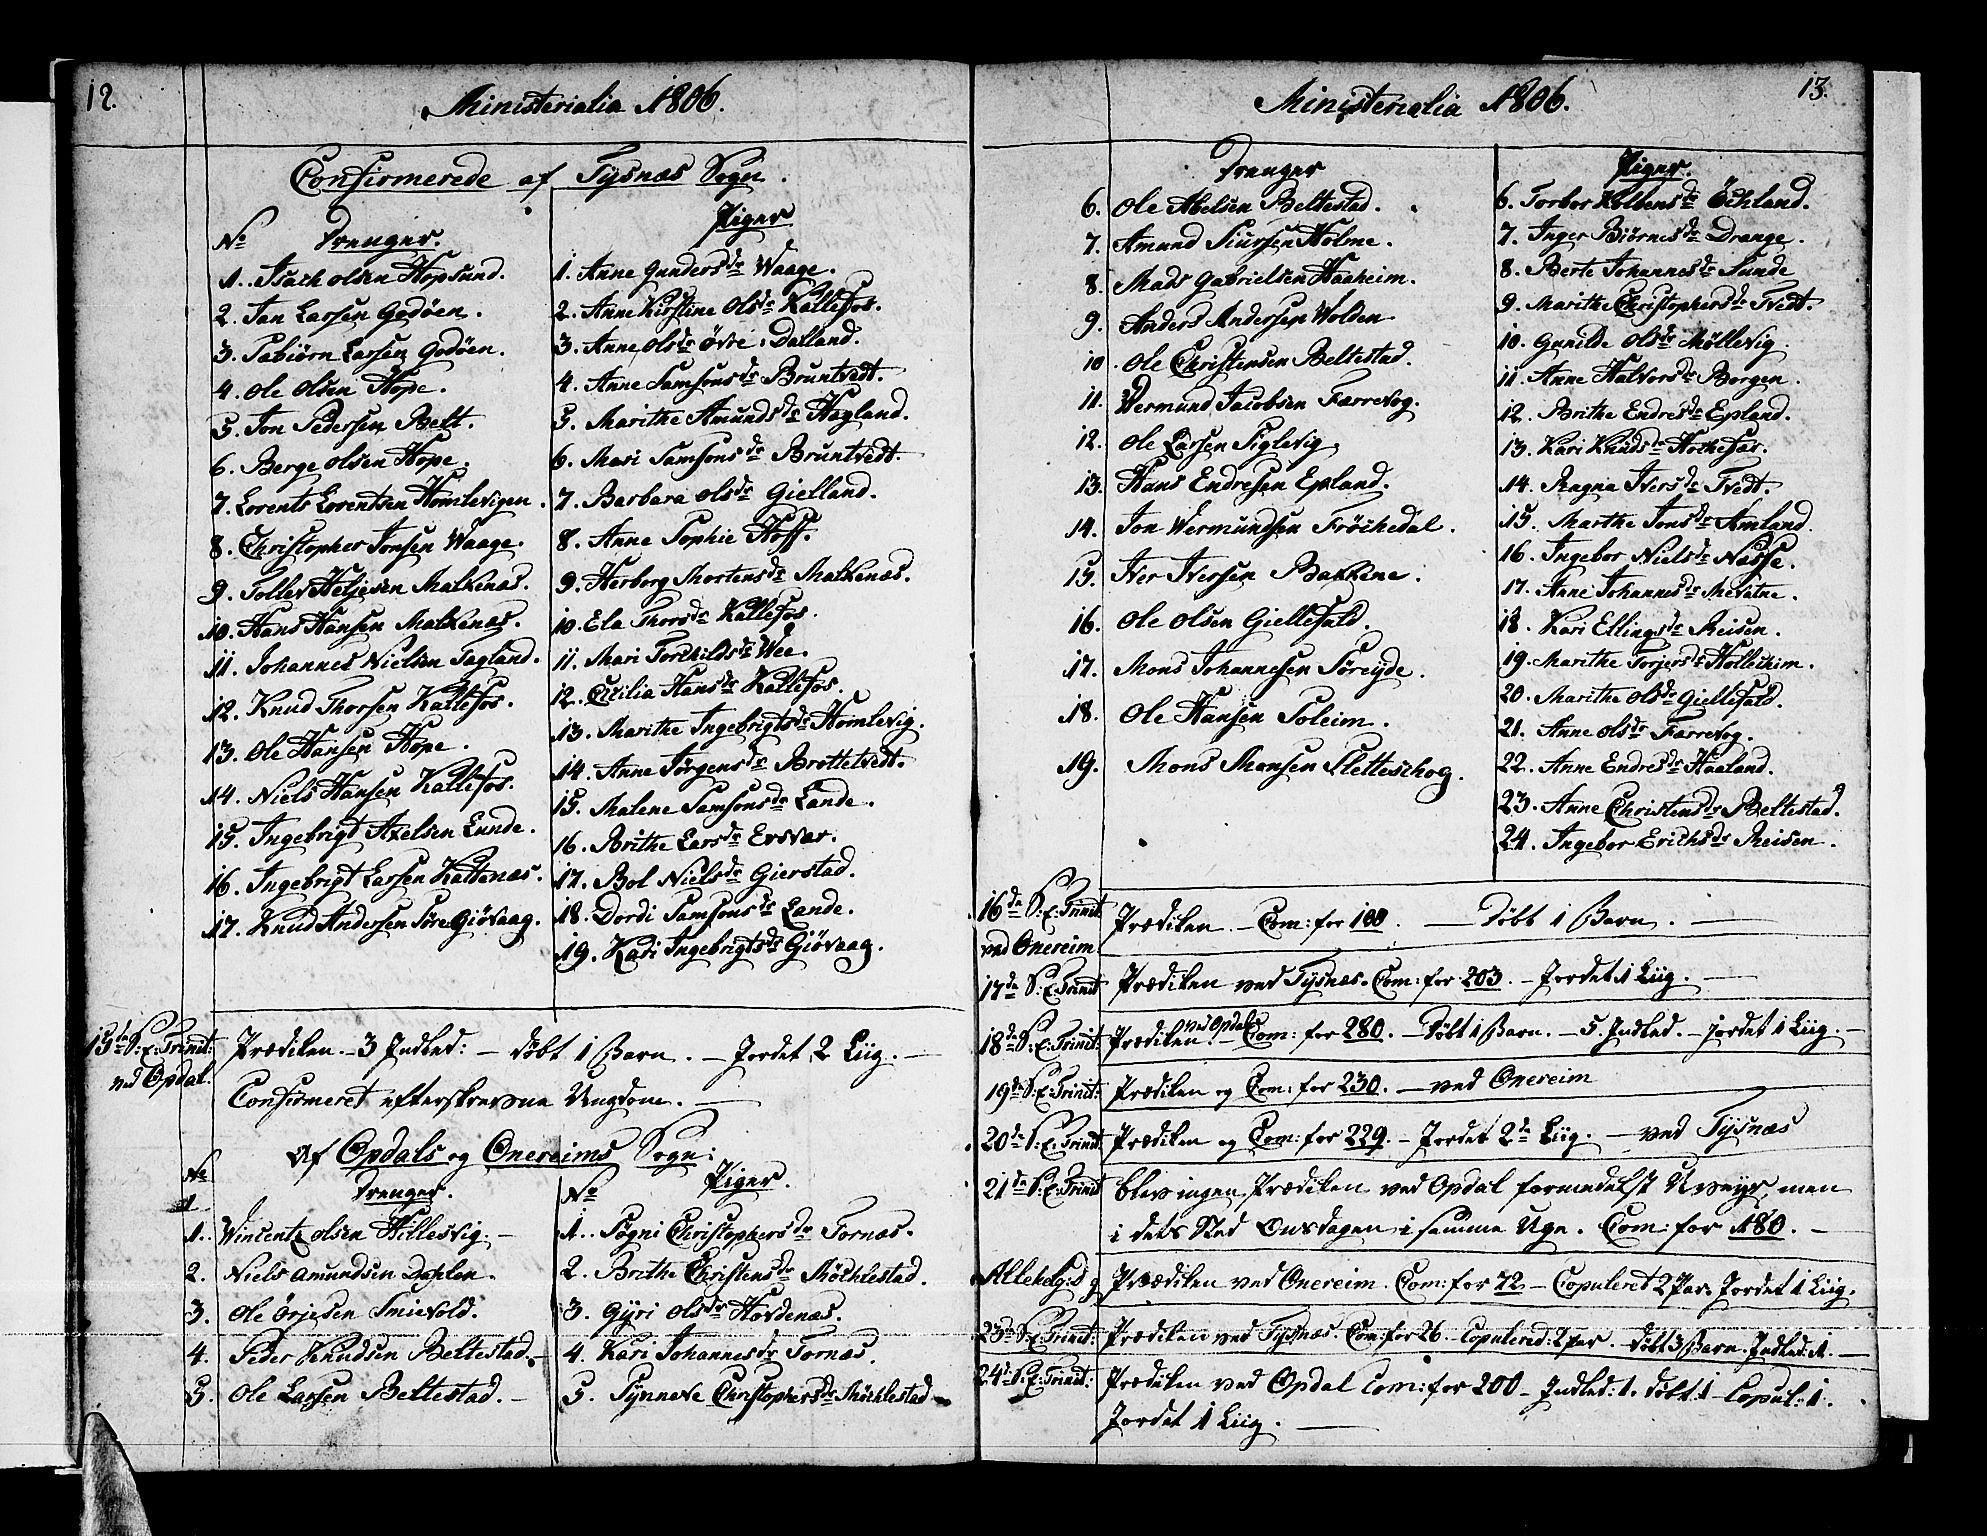 12.
Ministerialia 1806.
Confirmerede af Tysnæs Sogn.
No Drenger.
1. Isach Olsen Hopsund.
2. Jan Larsen Godöen.
3. Sabiörn Larsen Godöen.
4. Ole Olsen Hope.
5. Jon Pedersen Belt.
6. Berge Olsen Hope.
7. Lorents Lorentsen Homlevigen.
8. Christopher Jonsen Waage.
9. Tollev Heljesen Malkenæs.
10. Hans Hansen Malkenæs.
11. Johannes Nielsen Fagland.
12. Knud Thorsen Kaltefos.
13. Ole Hansen Hope.
14. Niels Hansen Kaltefos.
15. Ingebrigt Axelsen Lunde.
16. Ingebrigt Larsen Kaltenæs.
17. Knud Andersen Söre Giövaag.
Piger
1. Anne Gundersdr Waage.
2. Anne Kirstine Olsdr Kaltefos.
3. Anne Olsdr övre Dalland.
4. Anne Samsonsdr Bruntvedt.
5. Marithe Amundsdr Hagland.
6. Mari Samsonsdr Bruntvedt.
7. Barbara Olsdr Gielland.
8. Anne Sophie Hoff.
9. Herborg Mortensdr Malkenæs.
10. Ela Thorsdr Kaltefos.
11. Mari Torchildsdr Wee.
12. Cecilia Hansdr Kaltefos.
13. Marithe Ingebrigtsdr Homlevig.
14. Anne Jörgensdr Brottetvedt.
15. Malene Samsonsdr Lande.
16. Brithe Larsdr Ersvær.
17. Bol Nielsdr Gierstad.
18. Dordi Samsonsdr Lande.
19. Kari Ingebrigtsdr Giövaag.
15de S: E: Trinit: Prædiken – 3 Indled: – döbt 1 Barn. – Jordet 2 Liig. –
ved Opdal. Confirmeret efterskrevne Ungdom. –
Af Opdals og Onereims Sogn:
No Drenger.
1. Wincentz Olsen Hillesvig. –
2. Niels Amundsen Dahlen.
3. Ole Örjesen Smievold.
4. Peder Knudsen Beltestad. –
5. Ole Larsen Beltestad. –
No Piger.
1. Sögni Christophersdr Tornæs.
2. Brithe Christensdr Möchlestad.
3. Gyri Olsdr Hovdenæs.
4. Kari Johannesdr Tornæs.
5. Synneve Christophersdr Möchlestad
13.
Ministerialia 1806.
Drenger
6. Ole Abelsen Beltestad.
7. Amund Siursen Holme.
8. Mads Gabrielsen Haaheim.
9. Anders Andersen Wolden
10. Ole Christensen Beltestad.
11. Wermund Jacobsen Færrevog.
12. Ole Larsen Siglevig
13. Hans Endresen Epland.
14. Jon Wermundsen Fröchedal.
15. Iver Iversen Bakkene.
16. Ole Olsen Giellefald.
17. Mons Johannesen Söreyde.
18. Ole Hansen Soleim.
19. Mons Monsen Sletteschog.
Piger.
6. Torbor Kolbensdr Öchland.
7. Inger Biörnesdr Drange.
8. Berte Johannesdr Sunde
9. Marithe Christophersdr Tvedt.
10. Gunilde Olsdr Möllevig.
11. Anne Halvorsdr Borgen.
12. Brithe Endresdr Epland.
13. Kari Knudsdr
14. Ragna Iversdr Tvedt.
15. Marthe Jonsdr Amland.
16. Ingebor Nielsdr Næsse.
17. Anne Johannesdr Mevatne.
18. Kari Ellingsdr Reisen.
19. Marithe Torjersdr Holleckim.
20. Marithe Olsdr Giellefald.
21. Anne Olsdr Færrevog.
22. Anne Endresdr Haaland.
23. Anne Christensdr Beltestad.
24. Ingebor Erichsdr Reisen.
16de S: E: Trinit: Prædiken – Com: for 100. – Döbt 1 Barn. –
ved Onereim
17de S: E: Trinit: Prædiken ved Tysnæs. Com: for 203. – Jordet 1 Liig. –
18de S: E: Trinit: Prædiken ved Opdal – Com: for 280. – Döbt 1 Barn. – 5. Indled. – jordet 1 Liig. –
19de S: E: Trinit: Prædiken og Com: for 230. – ved Onereim
20de S: E: Trinit: Prædiken og Com: for 229. – Jordet 2de Liig. – ved Tysnæs
21de S: E: Trinit: blev ingen Prædiken ved Opdal formedelst Uveyr, men
i dets Sted Onsdagen i samme Uge. Com: for 180. –
Allehelg: Prædiken ved Onereim. Com: for 72 – Copuleret 2 Par. Jordet 1 Liig.
23de S: E: Trinit: Prædiken ved Tysnæs. Com: for 26 – Copulered: 2 par. – döbt 3 Barn. Indled: 1. –
24de S: E: Trinit: Prædiken ved Opdal Com: for 200 – Indled: 1. döbt: 1 – Copul: 1.
Jordet 1 Liig. –